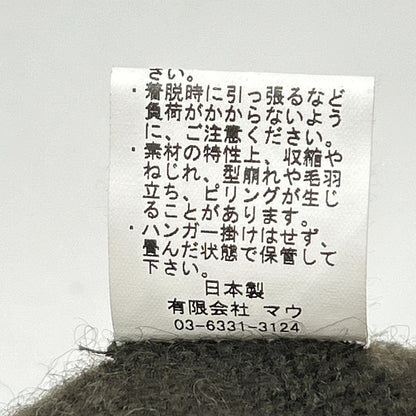 さい。
・着脱時に引っ張るなど
負荷がかからないよう
に、ご注意ください。
・素材の特性上、収縮や
ねじれ、型崩れや毛羽
立ち、ピリングが生じ
ることがあります。
・ハンガー掛けはせず、
畳んだ状態で保管して
下さい。
日本製
有限会社 マウ
03-6331-3124